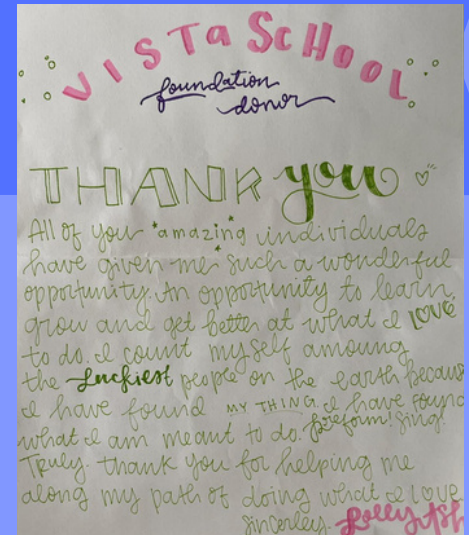 VISTa ScHOOL
foundation
donor
THANK you
All of you *amazing* individuals
have given me such a wonderful
opportunity. An opportunity to learn,
grow and get better at what I LOVE
to do. I count myself amoung
the Luckiest people on the earth becaus
I have found MY THING. I have found
what I am meant to do. Preform! Sing!
Truly. thank you for helping me
along my path of doing what I LOVE.
Sincerley.